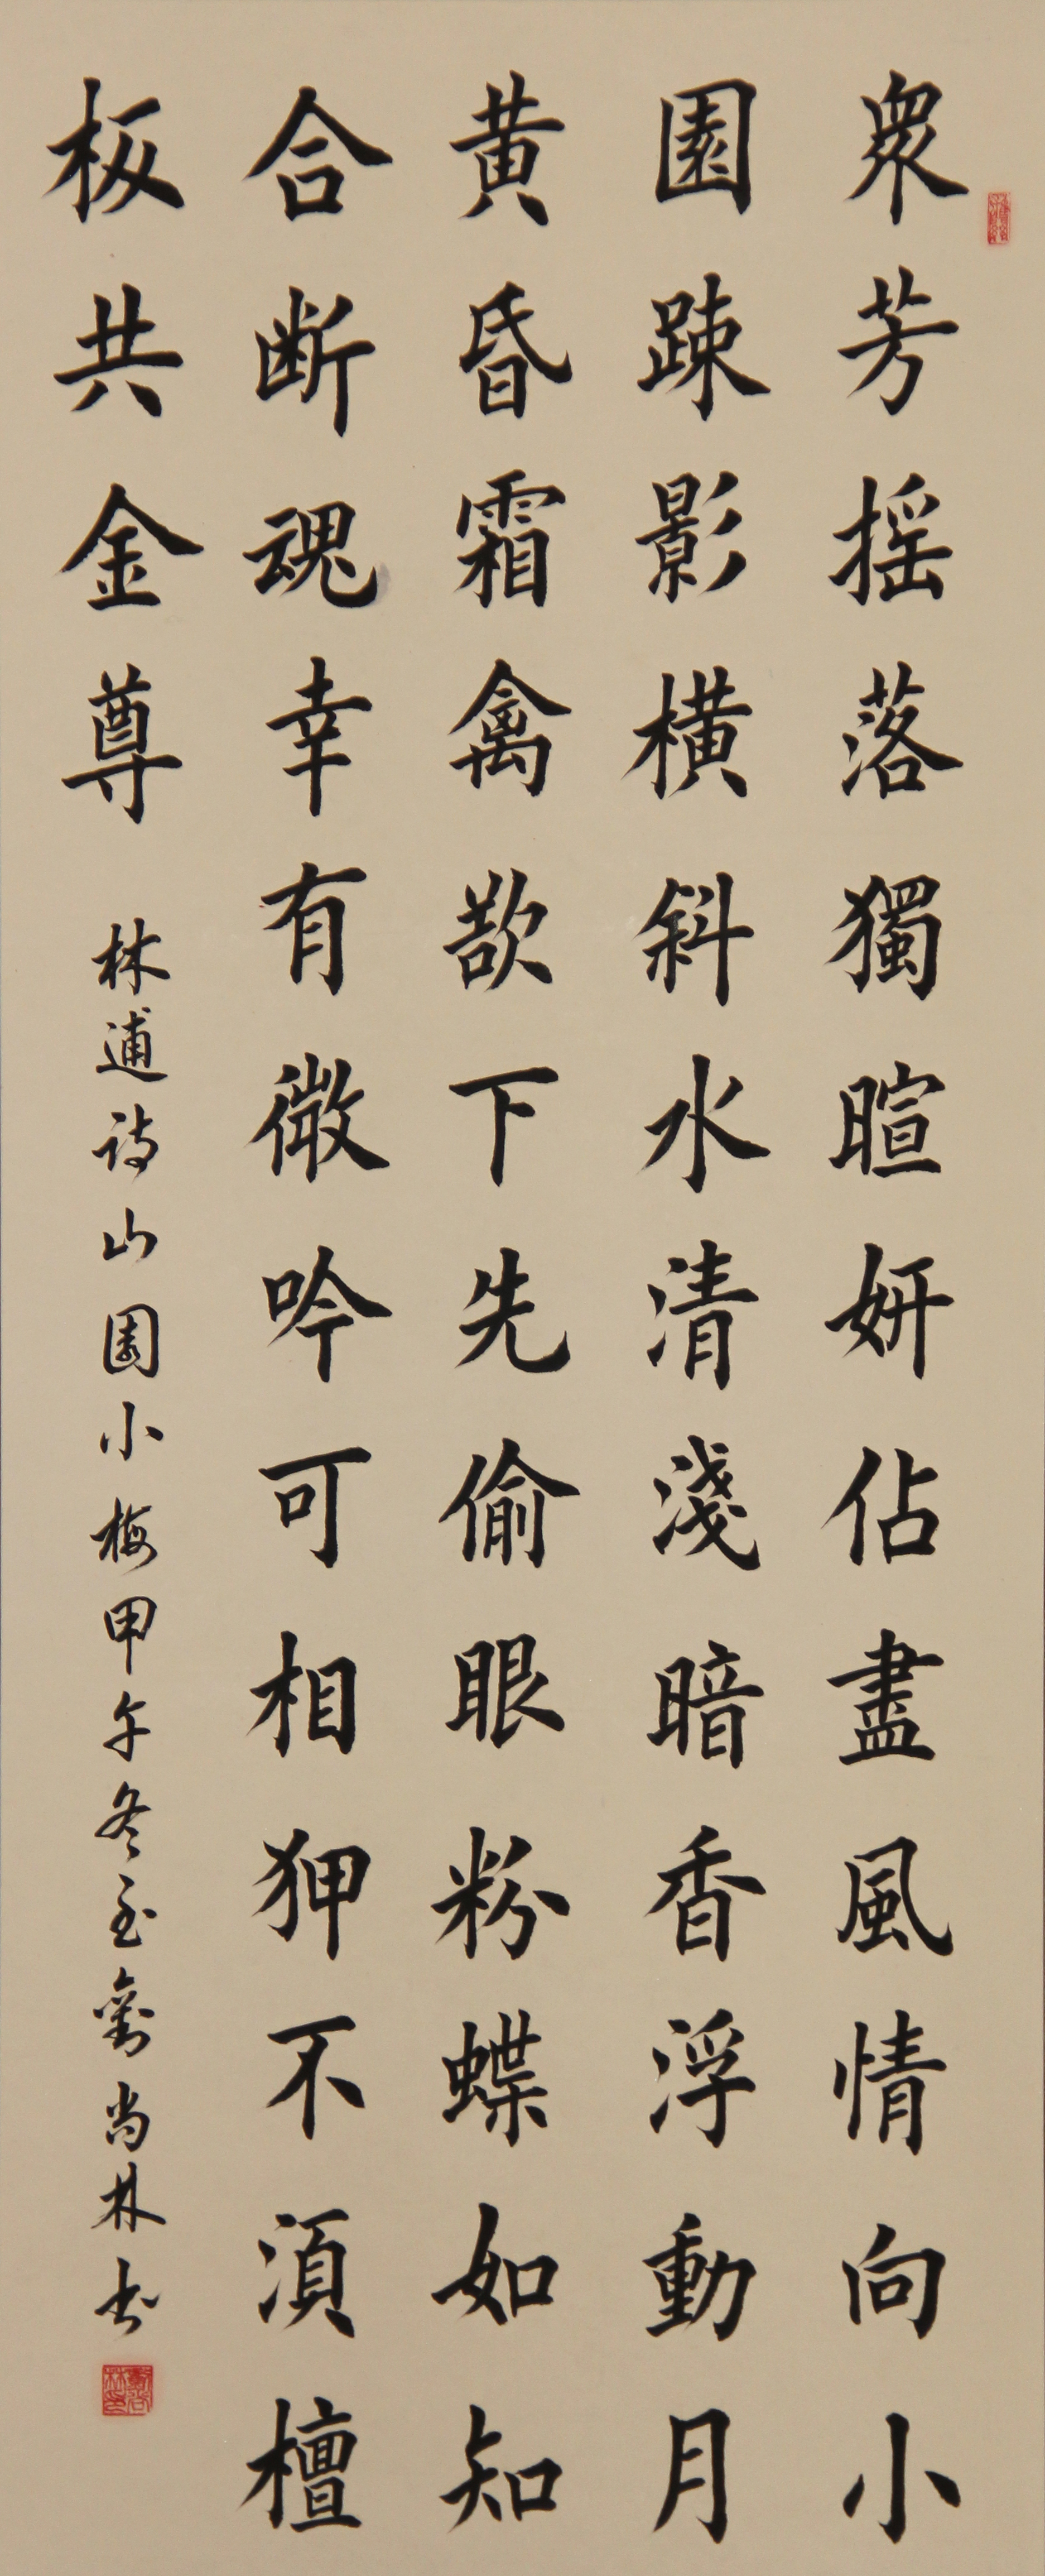 衆芳摇落獨暄妍佔盡風情向小
園踈影横斜水清淺暗香浮動月
黄昏霜禽欲下先偷眼粉蝶如知
合断魂幸有微吟可相狎不須檀
板共金尊
林逋诗山園小梅甲午冬至劉尚林书